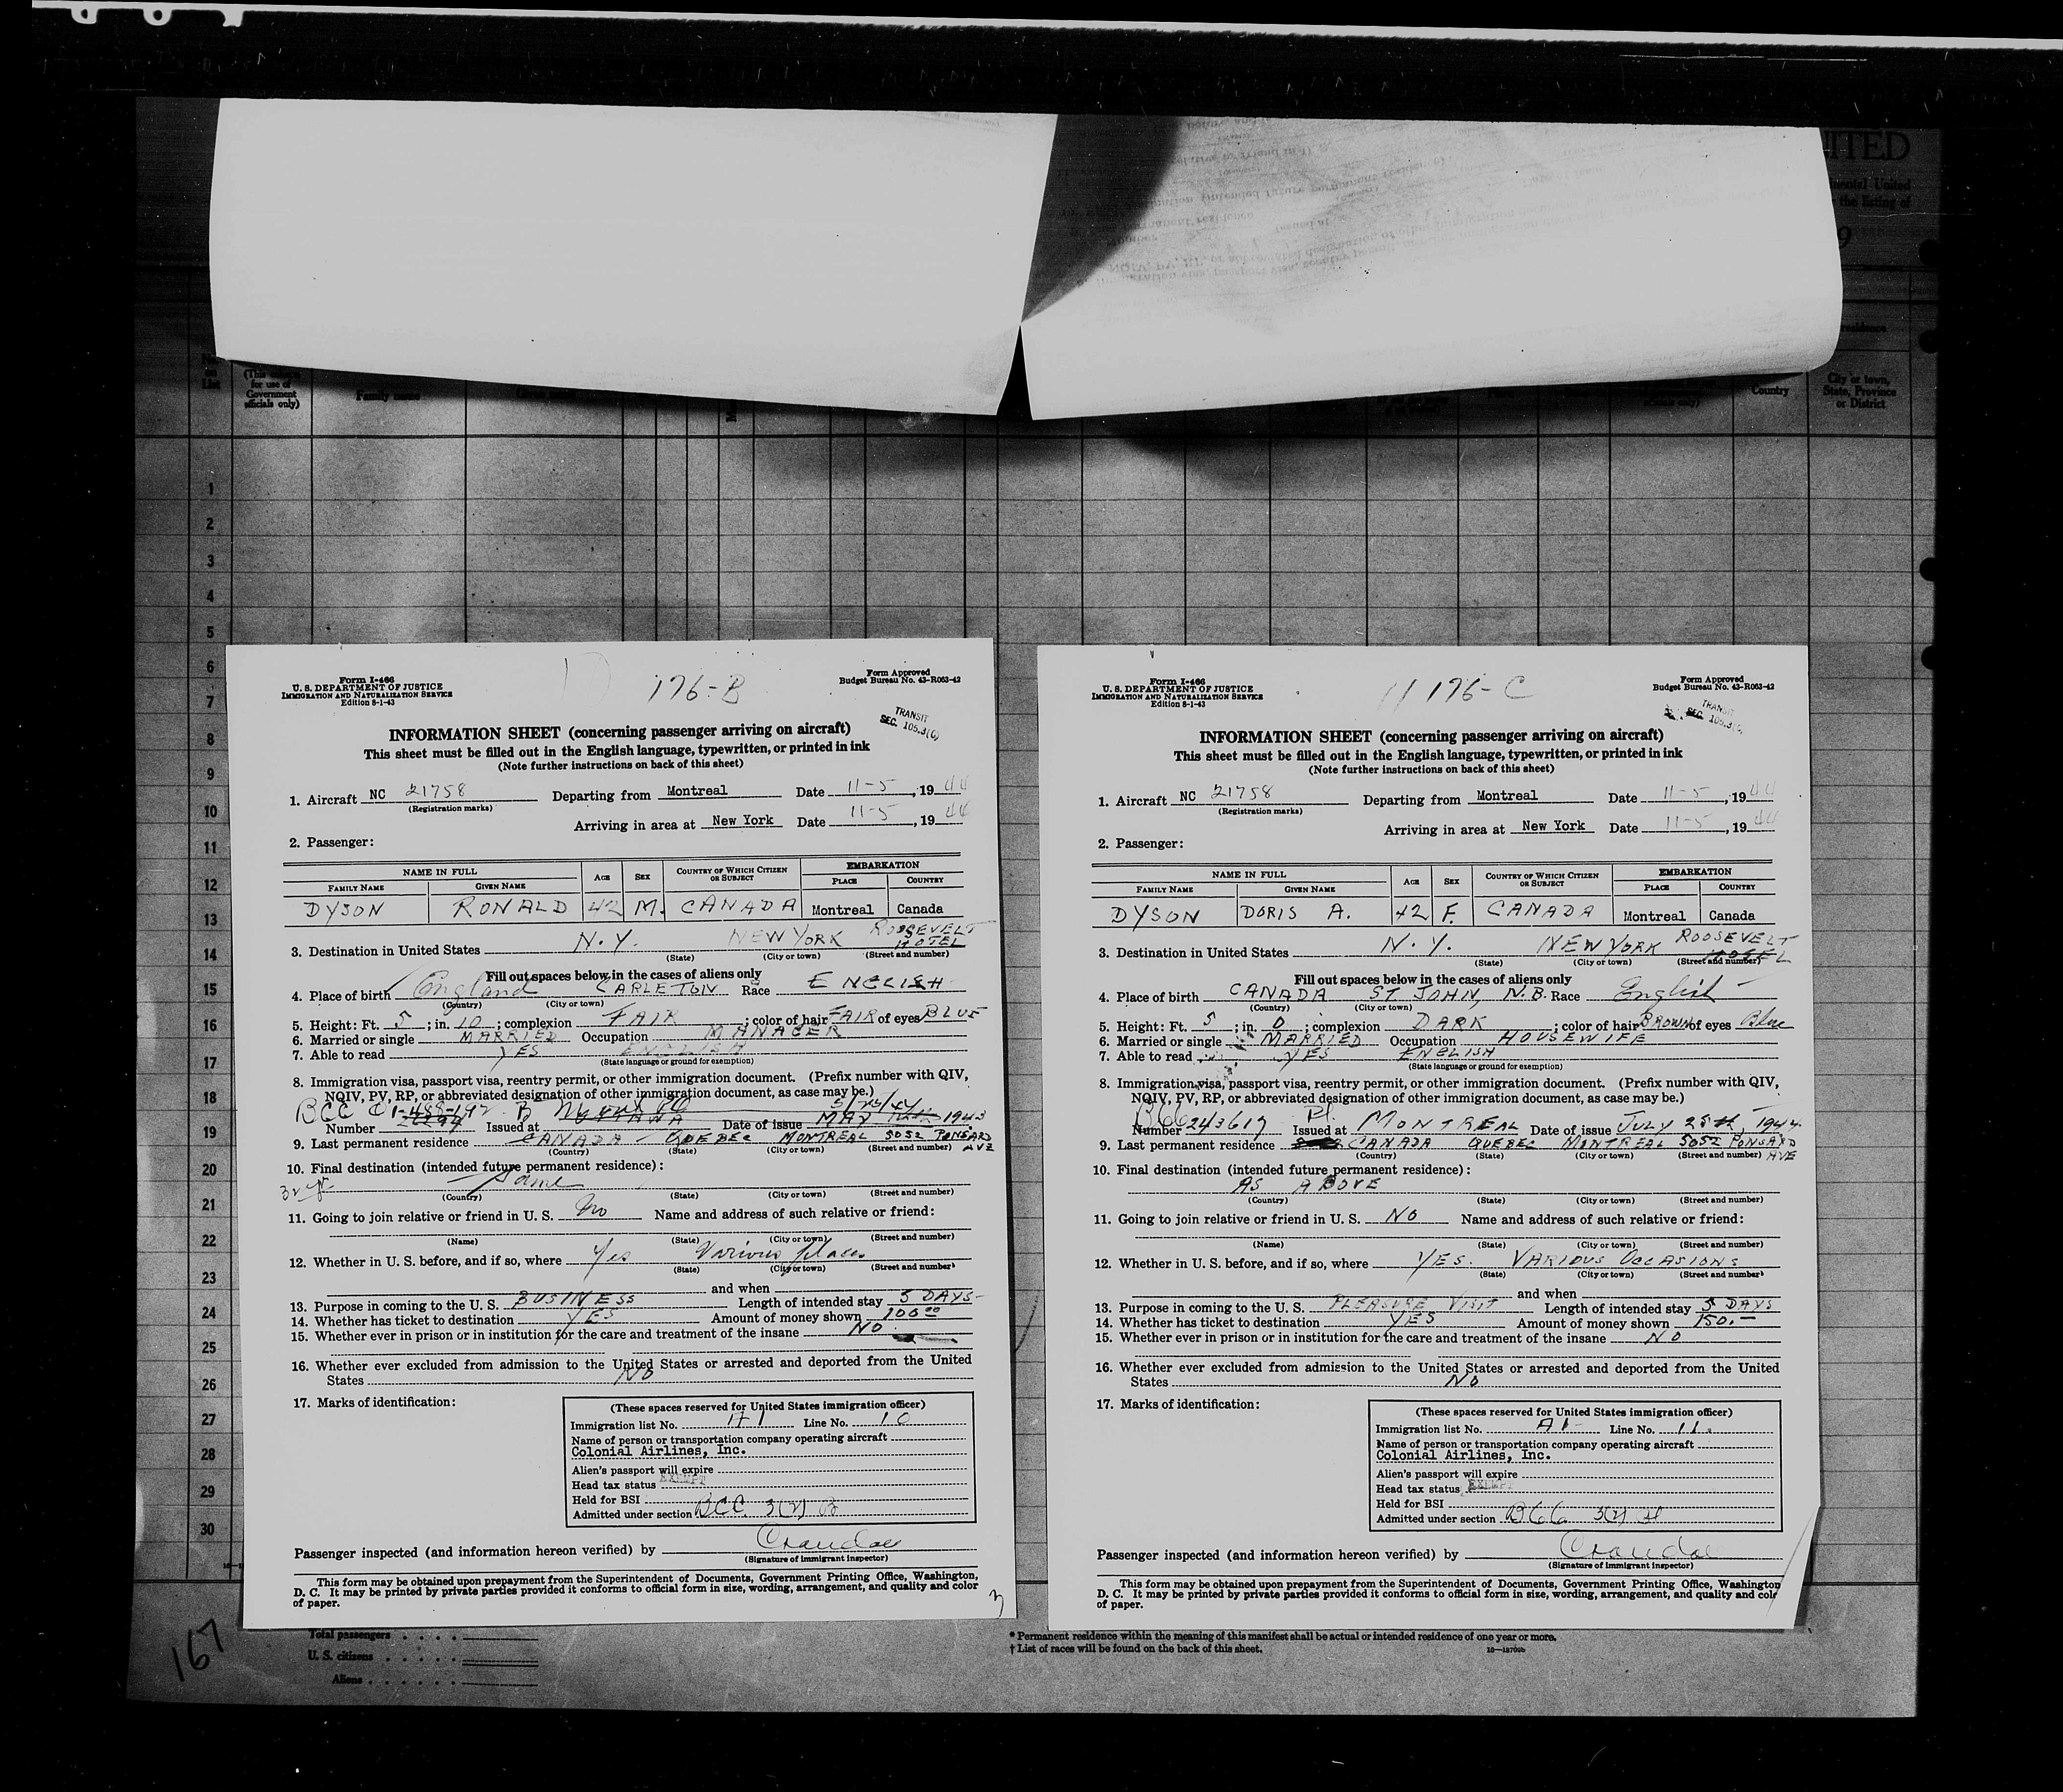 NITED
mental United
the listing of
residence
No.
on
List
(This column
for use of
Government
officials only)
Family name
Country
City or town,
State, Province
or District
1
2
3
4
5
6
7
8
9
10
11
12
13
14
15
16
17
18
19
20
21
22
23
24
25
26
27
28
29
30
Form I-466
U. S. DEPARTMENT OF JUSTICE
IMMIGRATION AND NATURALIZATION SERVICE
Edition 8-1-43
176-B
Form Approved
Budget Bureau No. 43-R063-42
TRANSIT
SEC. 105.3(C)
INFORMATION SHEET (concerning passenger arriving on aircraft)
This sheet must be filled out in the English language, typewritten, or printed in ink
(Note further instructions on back of this sheet)
1. Aircraft NC 21758 Departing from Montreal Date 11-5, 1944
(Registration marks)
Arriving in area at New York Date 11-5, 1944
2. Passenger:
NAME IN FULL AGE SEX COUNTRY OF WHICH CITIZEN OR SUBJECT EMBARKATION
FAMILY NAME GIVEN NAME PLACE COUNTRY
DYSON RONALD 42 M. CANADA Montreal Canada
3. Destination in United States N.Y. NEW YORK ROOSEVELT HOTEL
(State) (City or town) (Street and number)
Fill out spaces below in the cases of aliens only
4. Place of birth England CARLETON Race ENGLISH
(Country) (City or town)
5. Height: Ft. 5; in. 10; complexion FAIR; color of hair FAIR of eyes BLUE
6. Married or single MARRIED Occupation MANAGER
7. Able to read YES ENGLISH
(State language or ground for exemption)
8. Immigration visa, passport visa, reentry permit, or other immigration document. (Prefix number with QIV,
NQIV, PV, RP, or abbreviated designation of other immigration document, as case may be.)
BCC
Number Issued at OTTAWA Date of issue MAY 1943
9. Last permanent residence CANADA QUEBEC MONTREAL 5052 PONSARD AVE
(Country) (State) (City or town) (Street and number)
10. Final destination (intended future permanent residence):
Same
(Country) (State) (City or town) (Street and number)
11. Going to join relative or friend in U. S. No Name and address of such relative or friend:
(Name) (State) (City or town) (Street and number)
12. Whether in U. S. before, and if so, where Yes Various places
(State) (City or town) (Street and number)
and when
13. Purpose in coming to the U. S. BUSINESS Length of intended stay 5 DAYS
14. Whether has ticket to destination YES Amount of money shown 100.00
15. Whether ever in prison or in institution for the care and treatment of the insane NO
16. Whether ever excluded from admission to the United States or arrested and deported from the United
States NO
17. Marks of identification:
(These spaces reserved for United States immigration officer)
Immigration list No. Line No. 10
Name of person or transportation company operating aircraft
Colonial Airlines, Inc.
Alien's passport will expire
Head tax status EXEMPT
Held for BSI
Admitted under section BCC 3(2) B
Passenger inspected (and information hereon verified) by
(Signature of immigrant inspector)
This form may be obtained upon prepayment from the Superintendent of Documents, Government Printing Office, Washington,
D. C. It may be printed by private parties provided it conforms to official form in size, wording, arrangement, and quality and color
of paper.
Form I-466
U. S. DEPARTMENT OF JUSTICE
IMMIGRATION AND NATURALIZATION SERVICE
Edition 8-1-43
176-C
Form Approved
Budget Bureau No. 43-R063-42
TRANSIT
SEC. 105.3(C)
INFORMATION SHEET (concerning passenger arriving on aircraft)
This sheet must be filled out in the English language, typewritten, or printed in ink
(Note further instructions on back of this sheet)
1. Aircraft NC 21758 Departing from Montreal Date 11-5, 1944
(Registration marks)
Arriving in area at New York Date 11-5, 1944
2. Passenger:
NAME IN FULL AGE SEX COUNTRY OF WHICH CITIZEN OR SUBJECT EMBARKATION
FAMILY NAME GIVEN NAME PLACE COUNTRY
DYSON DORIS A. 42 F. CANADA Montreal Canada
3. Destination in United States N.Y. NEW YORK ROOSEVELT HOTEL
(State) (City or town) (Street and number)
Fill out spaces below in the cases of aliens only
4. Place of birth CANADA ST JOHN, N.B. Race English
(Country) (City or town)
5. Height: Ft. 5; in. 0; complexion DARK; color of hair BROWN of eyes Blue
6. Married or single MARRIED Occupation HOUSEWIFE
7. Able to read YES ENGLISH
(State language or ground for exemption)
8. Immigration visa, passport visa, reentry permit, or other immigration document. (Prefix number with QIV,
NQIV, PV, RP, or abbreviated designation of other immigration document, as case may be.)
Number 243617 Issued at MONTREAL Date of issue JULY 25th, 1944
9. Last permanent residence CANADA QUEBEC MONTREAL 5052 PONSARD AVE
(Country) (State) (City or town) (Street and number)
10. Final destination (intended future permanent residence):
AS ABOVE
(Country) (State) (City or town) (Street and number)
11. Going to join relative or friend in U. S. NO Name and address of such relative or friend:
(Name) (State) (City or town) (Street and number)
12. Whether in U. S. before, and if so, where YES. VARIOUS OCCASIONS
(State) (City or town) (Street and number)
and when
13. Purpose in coming to the U. S. PLEASURE VISIT Length of intended stay 5 DAYS
14. Whether has ticket to destination YES Amount of money shown 150.—
15. Whether ever in prison or in institution for the care and treatment of the insane NO
16. Whether ever excluded from admission to the United States or arrested and deported from the United
States NO
17. Marks of identification:
(These spaces reserved for United States immigration officer)
Immigration list No. A1 Line No. 11.
Name of person or transportation company operating aircraft
Colonial Airlines, Inc.
Alien's passport will expire
Head tax status EXEMPT
Held for BSI
Admitted under section 3(2)
Passenger inspected (and information hereon verified) by
(Signature of immigrant inspector)
This form may be obtained upon prepayment from the Superintendent of Documents, Government Printing Office, Washington
D. C. It may be printed by private parties provided it conforms to official form in size, wording, arrangement, and quality and color
of paper.
167
Total passengers
U. S. citizens
Aliens
* Permanent residence within the meaning of this manifest shall be actual or intended residence of one year or more.
† List of races will be found on the back of this sheet.